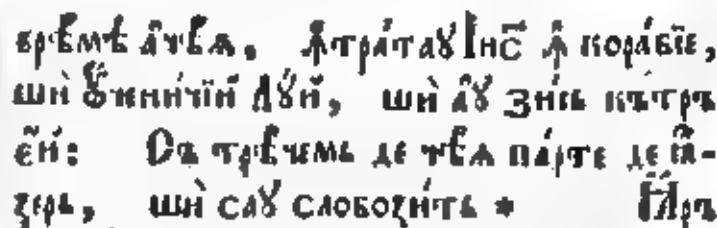 врѣ́мѣ а҆чѣ́ѧ, Ꙟ҆тра́таꙋ І҆и҃с ꙟ҆ кора́бїе,
шѝ Ꙋ҆чени́чїй лꙋ́й, шѝ а҆ꙋ зи́сь кътръ
є҆́й: Съ трѣ́чемь де чѣ́ѧ па́рте де ꙗ҆́-
ꙁерь, шѝ саꙋ слобоꙁи́ть * Ꙗ҆́ръ